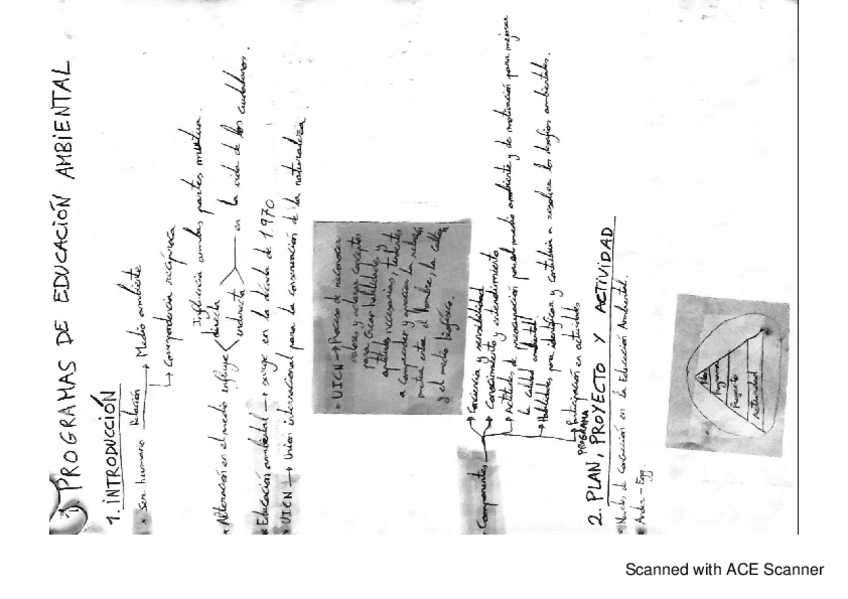 1. PROGRAMAS DE EDUCACIÓN AMBIENTAL
1. INTRODUCCIÓN
* Ser humano Relación → Medio ambiente
↳ Correspondencia recíproca
Influencia ambas partes mutua.
* Alteración en el medio influye directa
indirecta en la vida de los ciudadanos.
* Educación ambiental → surge en la década de 1.970
* UICN → Unión internacional para la conservación de la naturaleza
* UICN → Proceso de reconocer
valores y aclarar conceptos
para crear habilidades y
aptitudes necesarias, tendentes
a comprender y apreciar la relación
mutua entre el hombre, la cultura
y el medio biofísico.
* Componentes → Conciencia y sensibilidad
→ Conocimiento y entendimiento
→ Actitudes de preocupación por el medio ambiente y de motivación para mejorar
la calidad ambiental
→ Habilidades para identificar y contribuir a resolver los desafíos ambientales.
→ Participación en actividades
PROGRAMA
2. PLAN, PROYECTO Y ACTIVIDAD
* Niveles de Concreción en la Educación Ambiental.
* Ander-Egg.
Plan
Programa
Proyecto
Actividad
Scanned with ACE Scanner